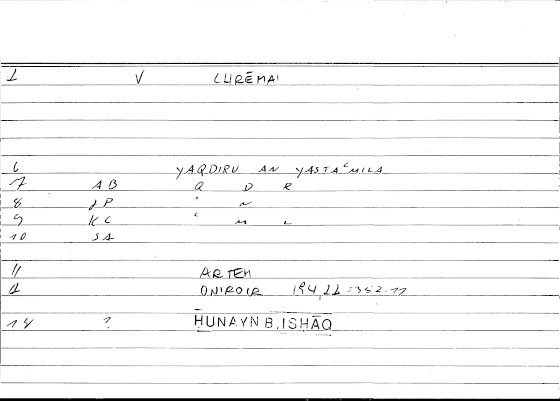 1 V CURĒMAI
6 YAQDIRU AN YASTAʿMILA
7 AB Q D R
8 JP ʾ N
9 KC ʿ M L
10 SA
11 ARTEM
ONIROCR 194,22 = 352.17
14 ? HUNAYN B. ISHĀQ